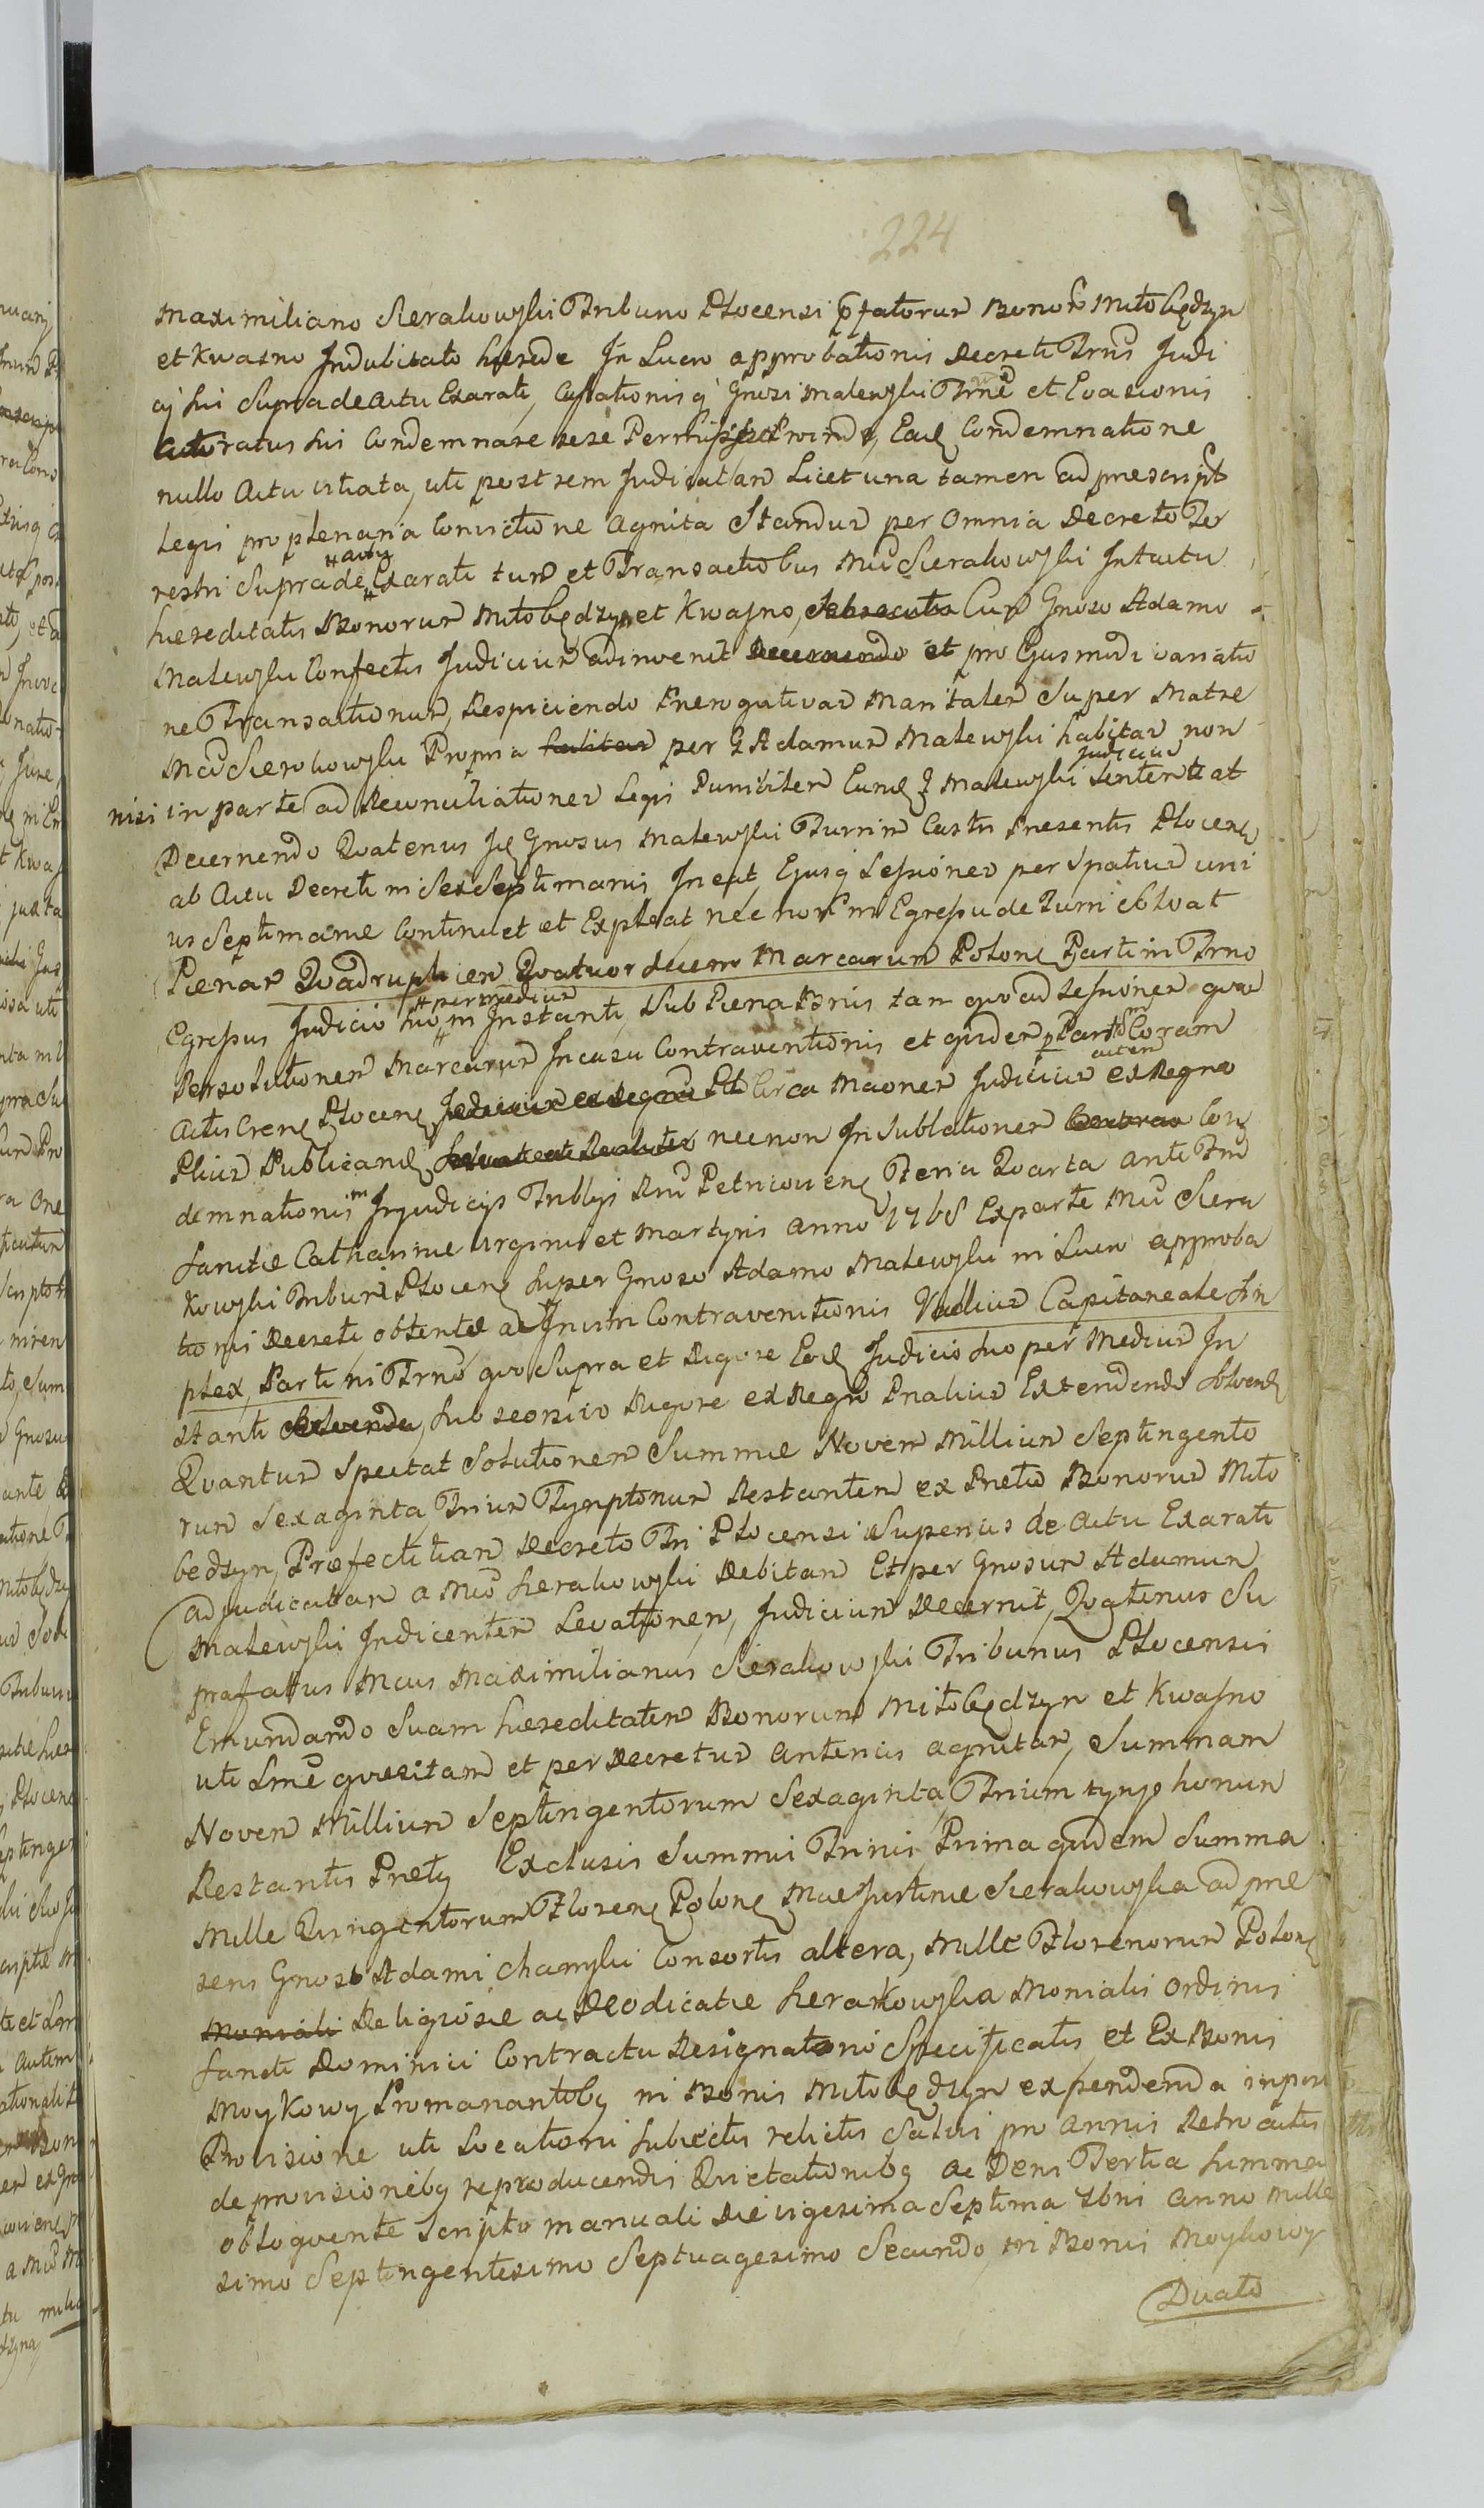 224
Maximiliano Sierakowski Tribuno Plocensi pfatorum Bonor Miłobędzyn
et Kwasno Indubitato hærede In Lucro approbationis Decreti Trnd Judi
cij sui Supra de actu Exarati, Cassationisq Gnosi Malewski Trne et Evasionis
Actoratus sui Condemnare sese Permisit, Eadę Condemnatione
nullo Actu vitiata, uti post rem Judicatam Licet una tamen ad præscript
Legis pro plenaria Convictione Agnita Standum per Omnia Decreto Ter
restri Supra de actu Exarati tum et Transactiobus Mci Sierakowski Intuitu
hæreditatis Bonorum Miłobędzyn et Kwasno, Cum Gnoso Adamo
Malewski Confectis Judicium adinvenit Decernendo et pro Ejusmodi variatio
ne Transactionum, Respiciendo Prerogativas Maritales Super Matre
Mci Sierakowski Propria habitas per G Adamum Malewski habitas non
nisi in parte ad Reconciliationes Legis Punibilem Eundę G Malewski judicium Sententiat
Decernendo Qvatenus Idę Gnosus Malewski Turrim Castri Presentis Plocenę
ab Actu Decreti in Sex Septimanis Ineat, Ejusq Sessiones per Spatium uni
us Septimanæ Continuet et Expleat nec non in Egressu de Turri Solvat
Pænas Qvadruplicem Qvatuordecem Marcarum Polonę Parti in Trno
Egressus Judicio suo per medium in Instanti, Sub Pæna Bnis tam qvo ad Sessiones qvo
Persolutionem Marcarum In casu Contraventionis et qvidem p Partem Coram
Actis Crenę Plocenę Judicium ex Regno Pb Circa Maones Judicium autem ex Regno
Pbium Publicandę necnon In Sublationem Conę
demnationis in Judicijs Trblijs Rni Petricovienę Feria Qvarta ante Fm
Sanctæ Catharinæ Virginis et Martyris Anno 1768 Ex parte Mci Siera
kowski Tribuni Plocenę super Gnoso Adamo Malewski in Lucro approba
tionis Decreti obtentæ ac Contraventionis Vadium Capitaneale Sim
plex, Parti in Trno qvo Supra et Rigore Eodę Judicio suo per Medium In
stanti Solvenda, sub seorsivo Rigore ex Regno Pnalium Extendendo Solvendę
Qvantum Spectat Solutionem Summæ Novem Millium Septingento
rum Sexaginta, Trium Tynphonum Restantem ex Pretio Bonorum Miło
bedzyn, Præfectitiam Decreto Tri Plocensi Superius de Actu Exarati
Adjudicattam a Mco Sierakowski Debitam Et per Gnosum Adamum
Malewski Indicenter Levationem, Judicium Decernit, Qvatenus Su
prafattus Mcus Maximilianus Sierakowski Tribunus Plocensis
Emundando Suam hæreditatem Bonorum Miłobędzyn et Kwasno
uti Lme qvæsitam et per Decretum Anterius agnitam, Summam
Novem Millium Septingentorum Sexaginta, Trium tynphonum
Restantis Pretij Exclusis Summis Trinis Prima qvidem Summa
Mille Qvingentorum Florenę Polonę Mcæ Justinæ Sierakowska ad præ
sens Gnosi Adami Chamski Consortis altera, Mille Florenorum Polonę
Moniali Religiosæ ac Deodicatæ Sierakowska Monialis Ordinis
Sancti Dominici Contractu Resignatorio Specificatis, et Ex Bonis
Moykowy Promanantibę in Bonis Miłobędzyn expendenda in pari
Provisione uti Locationi subiectis relictis Salvis pro Annis Retroactis
de provisionibę reproducendis Qvietationibę Ac Deni Tertia Summa
obloqvente Scripto manuali Die vigesima Septima Xbris Anno Mille
simo Septingentesimo Septuagesimo Secundo, in Bonis Moykowy
Duato